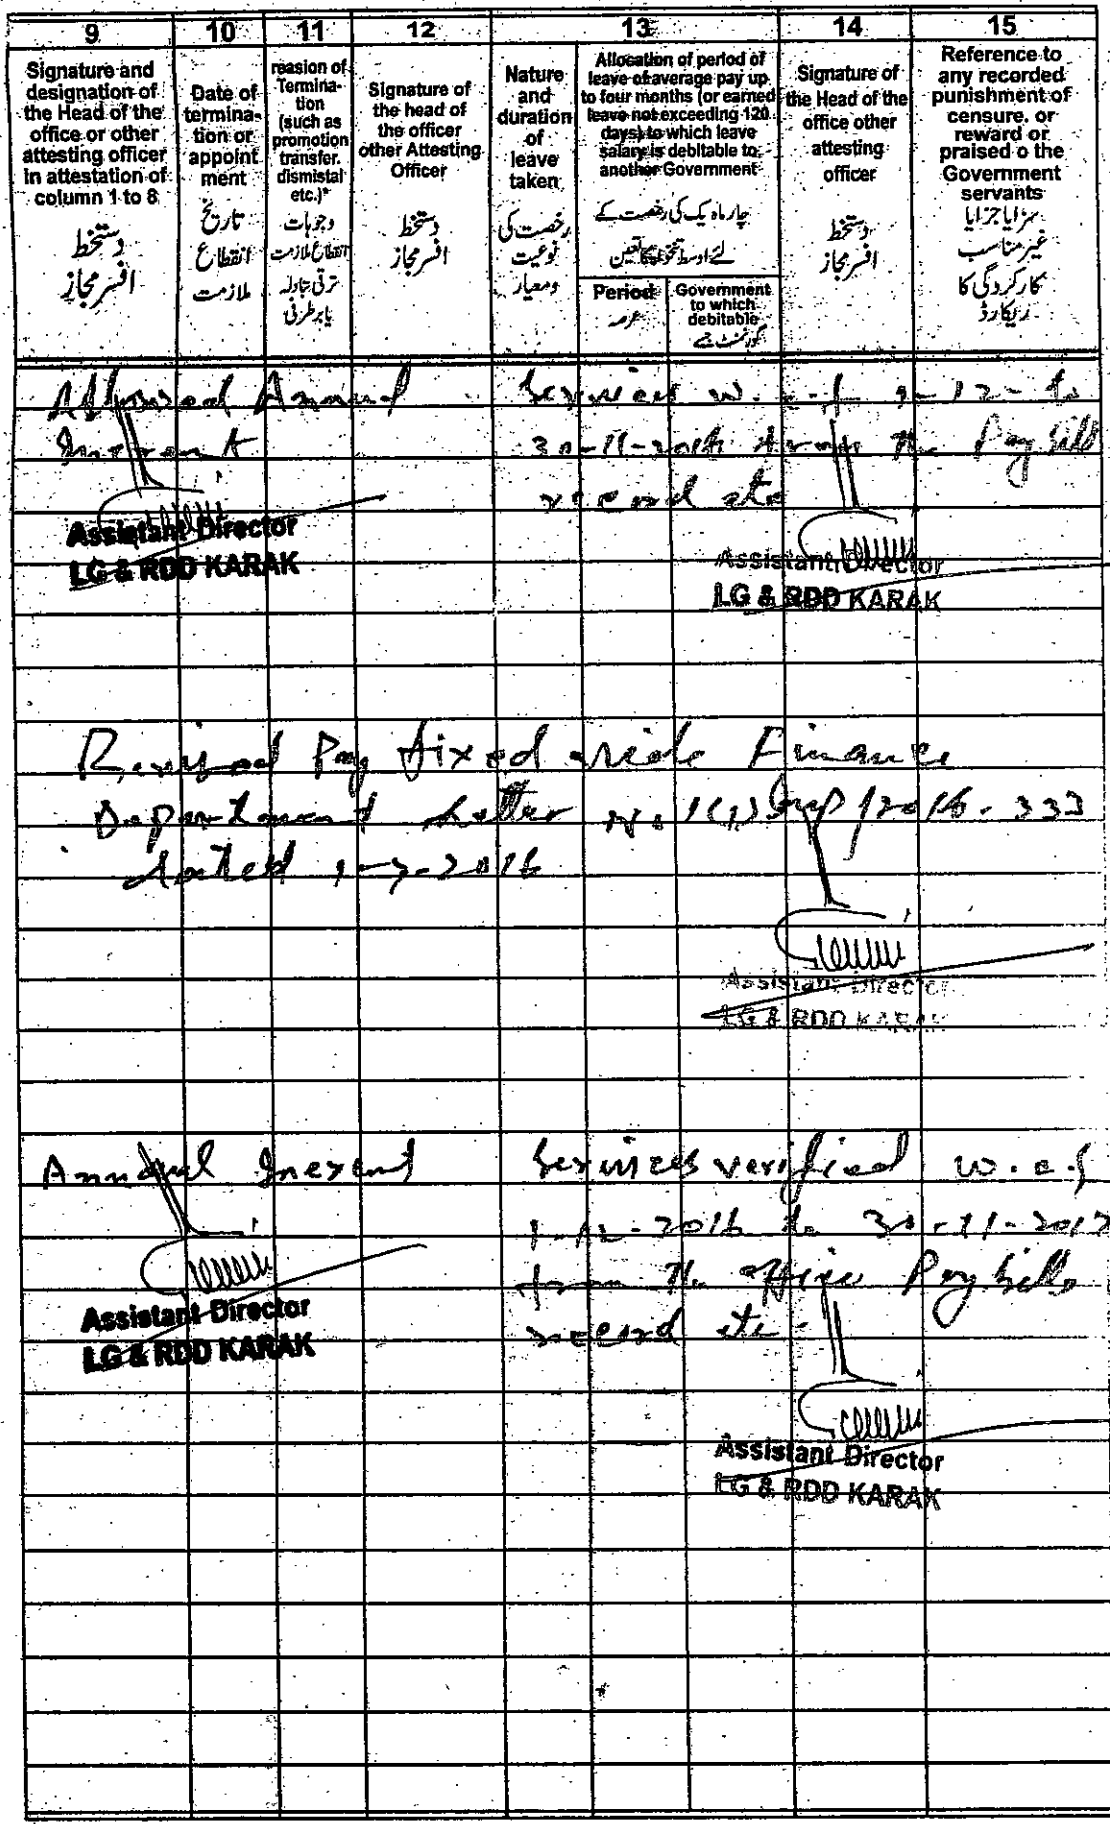 9 10 11 12 13 14 15
Signature and
designation of
the Head of the
office or other
attesting officer
in attestation of
column 1 to 8
دستخط
افسر مجاز
Date of
termina-
tion or
appoint
ment
تاریخ
انقطاع
ملازمت
reasion of
Termina-
tion
(such as
promotion
transfer.
dismistal
etc.)*
وجوہات
انقطاع ملازمت
ترقی تبادلہ
یا برطرفی
Signature of
the head of
the officer
other Attesting
Officer
دستخط
افسر مجاز
Nature
and
duration
of
leave
taken
رخصت کی
نوعیت
ومعیار
Allocation of period of
leave of average pay up
to four months (or earned
leave not exceeding 120
days) to which leave
salary is debitable to
another Government
چار ماہ یک کی رخصت کے
لئے اوسط تنخواہ کا تعین
Period
عرصہ
Government
to which
debitable
Signature of
the Head of the
office other
attesting
officer
دستخط
افسر مجاز
Reference to
any recorded
punishment of
censure. or
reward or
praised o the
Government
servants
سزا یا جزا یا
غیر مناسب
کارکردگی کا
ریکارڈ
Allowed Annual
Increment
Assistant Director
LG & RDD KARAK
Services w.e.f 1-12- to
30-11-2016 from the Pay bills
record etc
Assistant Director
LG & RDD KARAK
Revised Pay fixed vide Finance
Department Letter No. 1(1) Imp/2016-333
dated 1-7-2016
Assistant Director
LG & RDD KARAK
Annual Increment
Assistant Director
LG & RDD KARAK
Services verified w.e.f
1-12-2016 to 30-11-2017
from the office Pay bills
record etc-
Assistant Director
LG & RDD KARAK